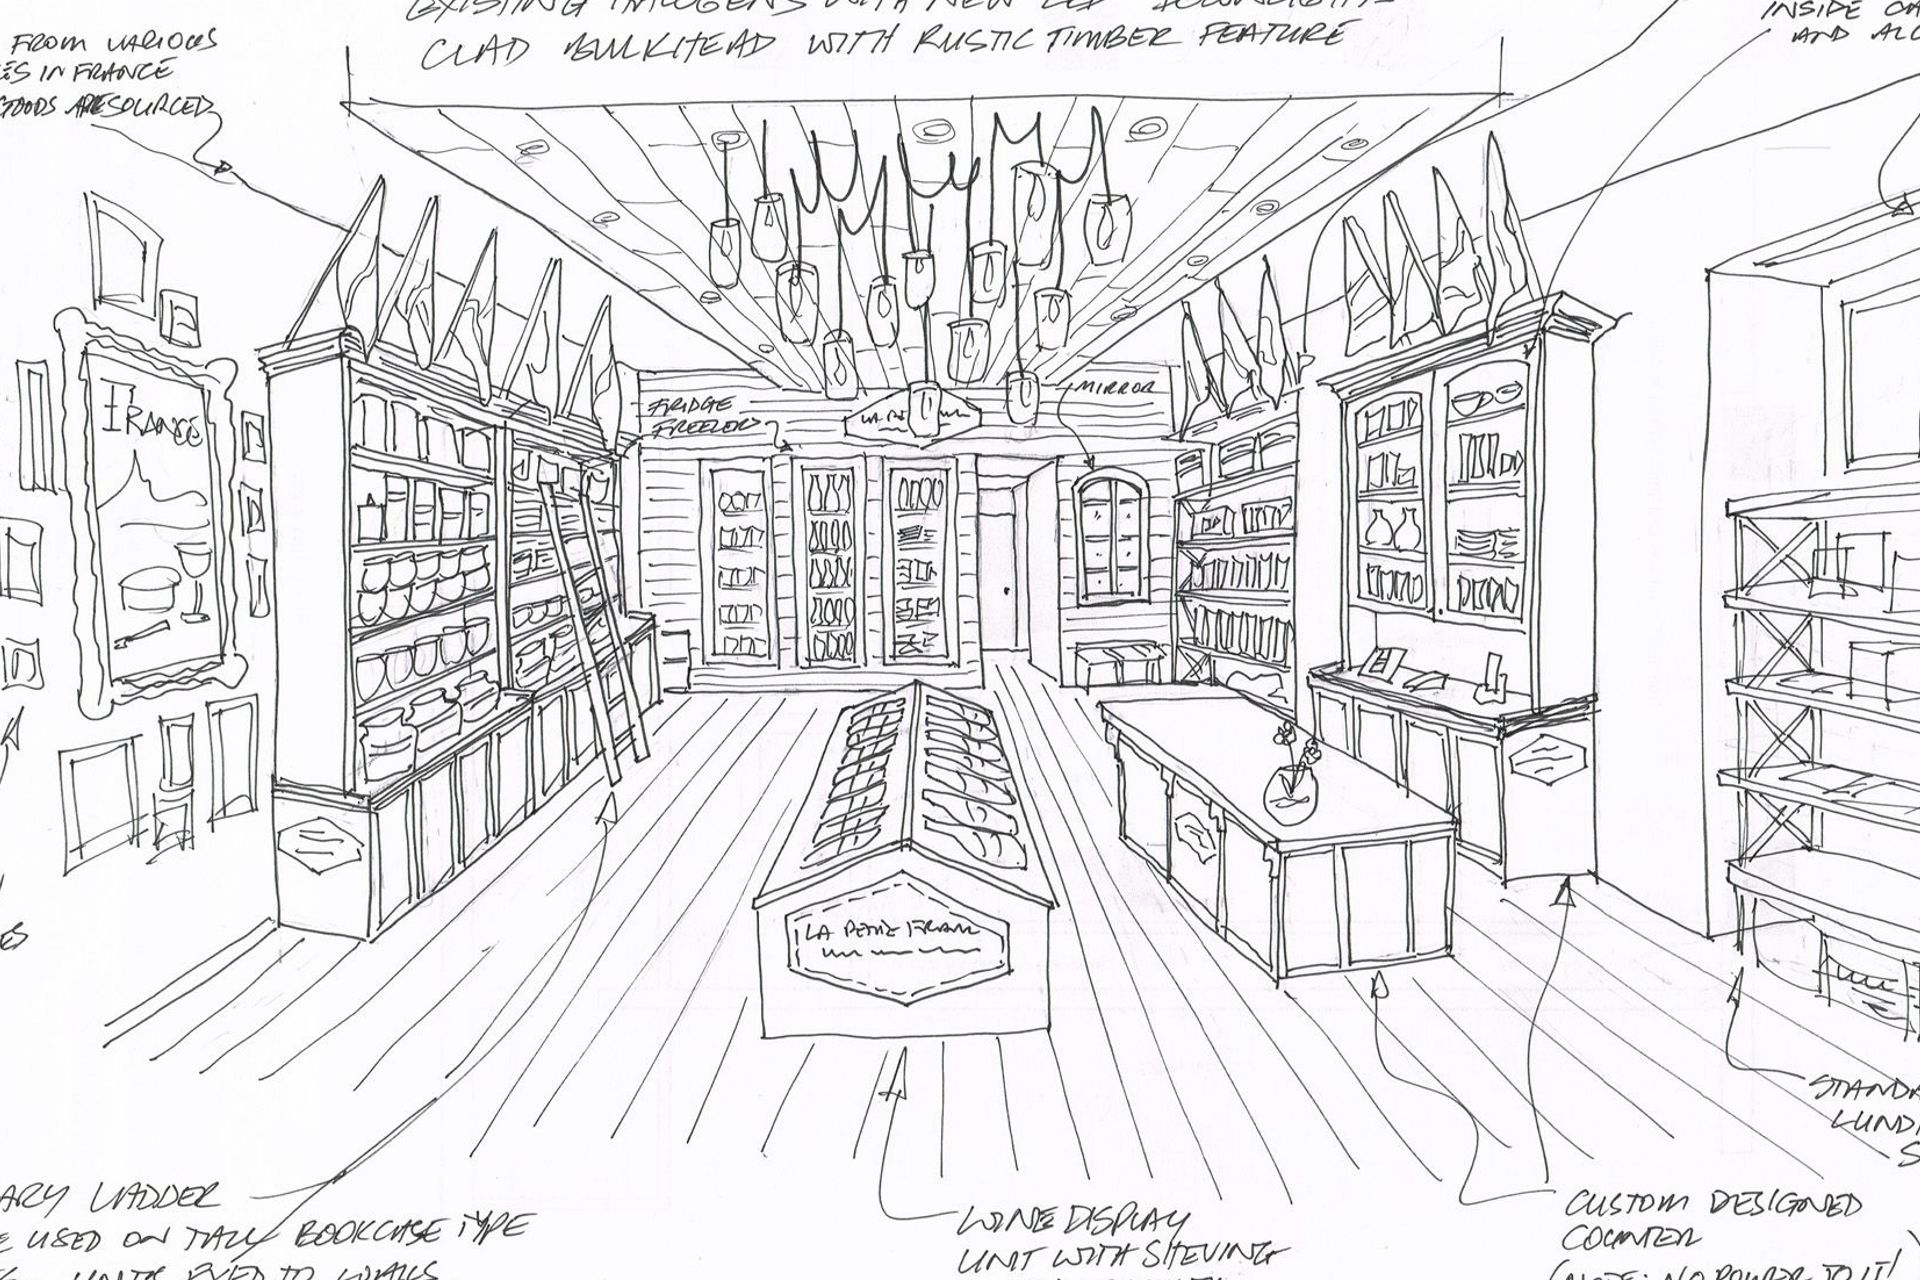 EXISTING HALOGENS WITH NEW LED DOWNLIGHTS
CLAD BULKHEAD WITH RUSTIC TIMBER FEATURE
FROM VARIOUS
IN FRANCE
GOODS ARE SOURCED
INSIDE
AND
FRANCE
FRIDGE
FREEZER
MIRROR
LA PETITE
LADDER
USED ON TALL BOOKCASE TYPE
UNITS FIXED TO WALLS
WINE DISPLAY
UNIT WITH SHELVING
CUSTOM DESIGNED
COUNTER
(NOTE: NO POWER TO IT!